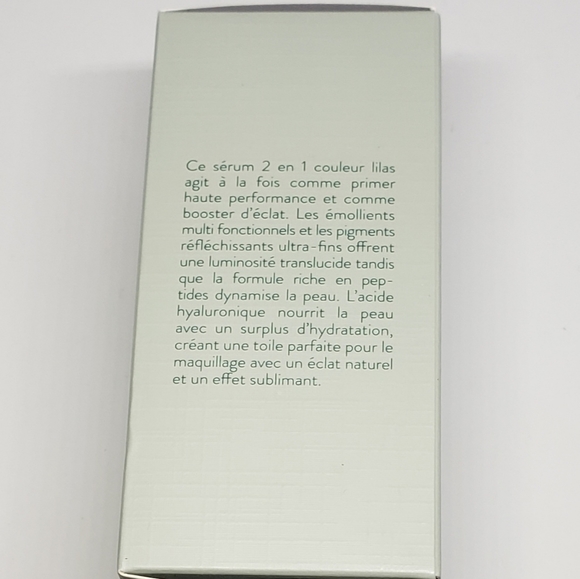 Ce sérum 2 en 1 couleur lilas
agit à la fois comme primer
haute performance et comme
booster d'éclat. Les émollients
multi fonctionnels et les pigments
réfléchissants ultra-fins offrent
une luminosité translucide tandis
que la formule riche en pep-
tides dynamise la peau. L'acide
hyaluronique nourrit la peau
avec un surplus d'hydratation,
créant une toile parfaite pour le
maquillage avec un éclat naturel
et un effet sublimant.